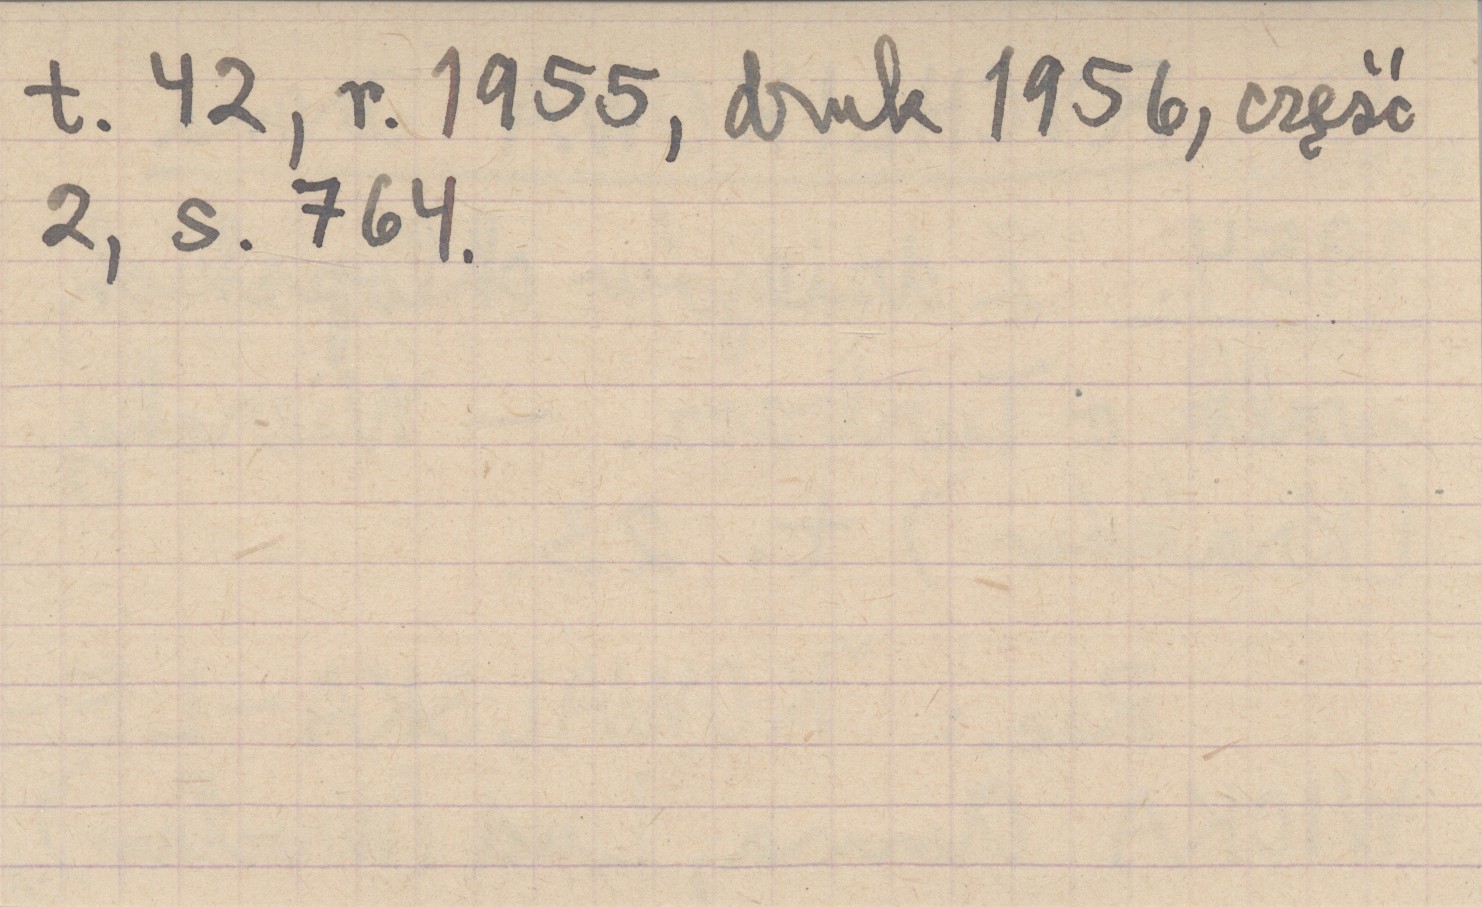 t. 42, r. 1955, druk 1956, część
2, s. 764.